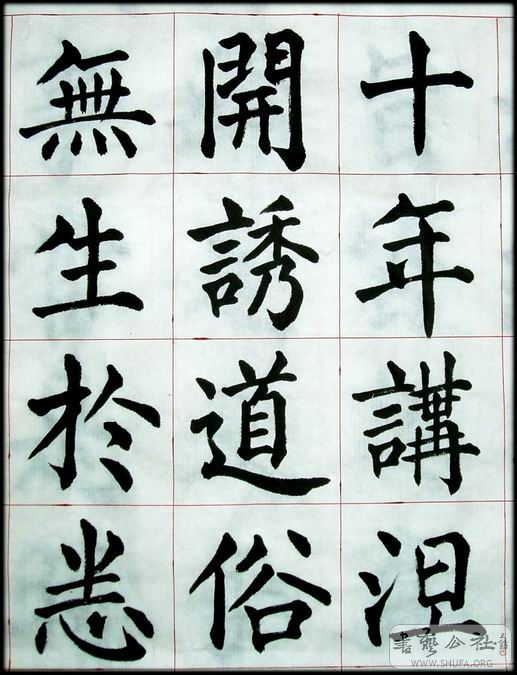 十年講涅
開誘道俗
無生於悉
書藝公社
WWW.SHUFA.ORG